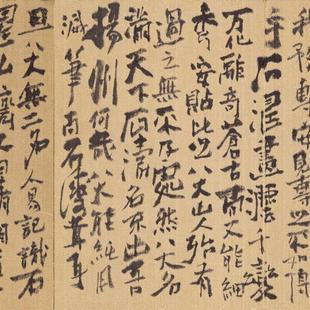 石濤畫法千變
万化離奇蒼古而又能細
秀妥貼比之八大山人殆有
過之無不及處然八大名
滿天下石濤名不出吾
揚州何哉八大能純用
減筆而石濤茸耳
且八大無二名人易記識石
濤弘濟又曰清湘道